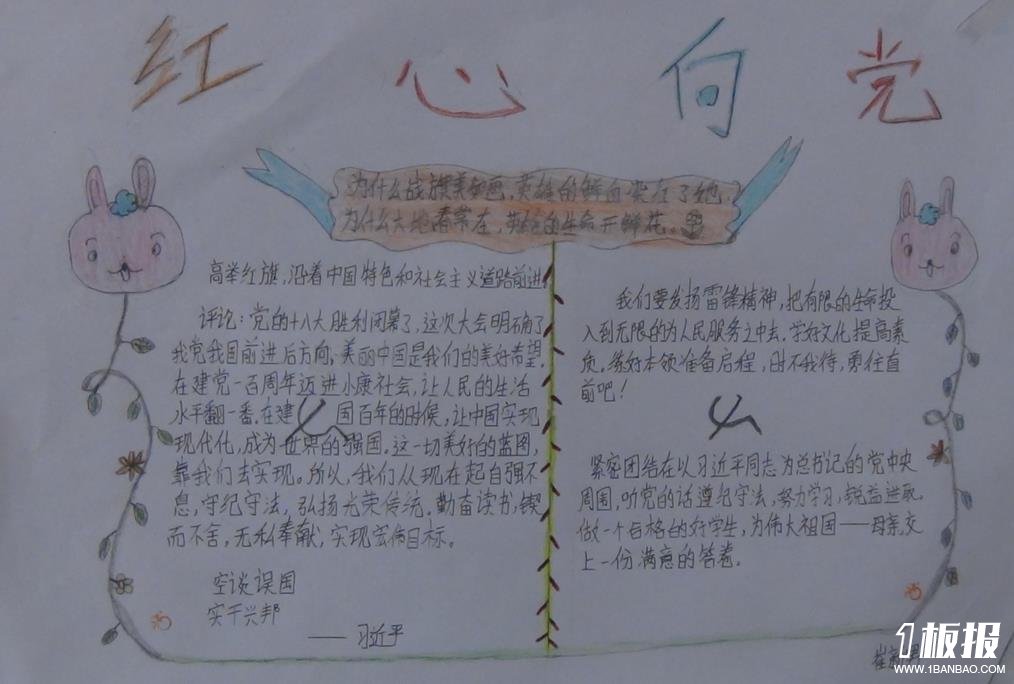 红心向党
为什么战旗美如画,英雄的鲜血染红了她,
为什么大地春常在,英雄的生命开鲜花。
高举红旗,沿着中国特色和社会主义道路前进
评论:党的十八大胜利闭幕了,这次大会明确了
我党我国前进后方向,美丽中国是我们的美好希望.
在建党一百周年迈进小康社会,让人民的生活
水平翻一番.在建国百年的时候,让中国实现
现代化,成为世界的强国.这一切美好的蓝图,
靠我们去实现。所以,我们从现在起自强不
息,守纪守法,弘扬光荣传统.勤奋读书,锲
而不舍,无私奉献,实现宏伟目标。
空谈误国
实干兴邦
——习近平
我们要发扬雷锋精神,把有限的生命投
入到无限的为人民服务之中去.学好文化,提高素
质,练好本领,准备启程,时不我待,勇往直
前吧!
紧密团结在以习近平同志为总书记的党中央
周围,听党的话遵纪守法,努力学习,锐益进取,
做一个合格的好学生,为伟大祖国——母亲,交
上一份满意的答卷.
1板报
WWW.1BANBAO.COM